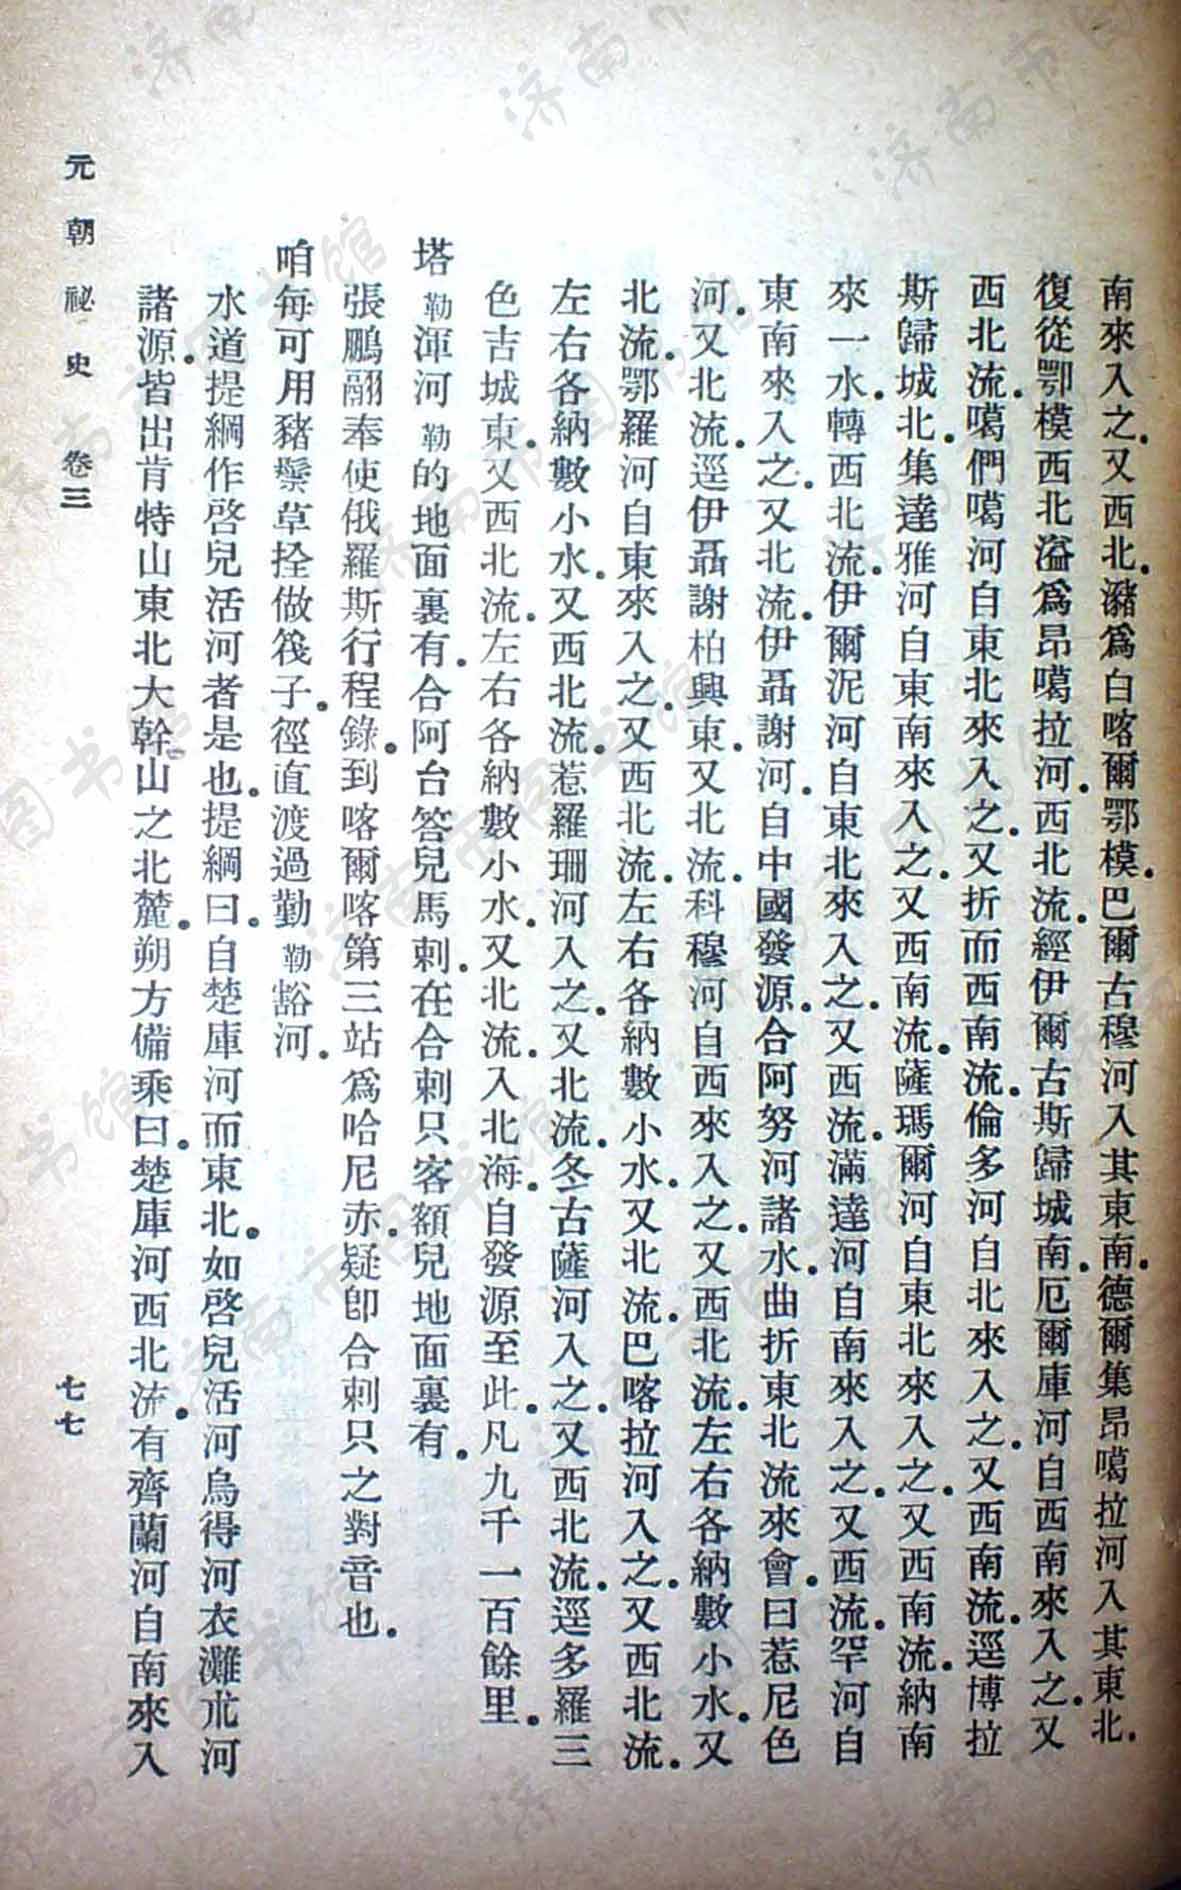 南來入之又西北瀦爲白喀爾鄂模巴爾古穆河入其東南德爾集昂噶拉河入其東北
復從鄂模西北溢爲昂噶拉河西北流經伊爾古斯歸城南厄爾庫河自西南來入之又
西北流噶們噶河自東北來入之又折而西南流倫多河自北來入之又西南流逕博拉
斯歸城北集達雅河自東南來入之又西南流薩瑪爾河自東北來入之又西南流納南
來一水轉西北流伊爾泥河自東北來入之又西流滿達河自南來入之又西流罕河自
東南來入之又北流伊聶謝河自中國發源合阿努河諸水曲折東北流來會曰惹尼色
河又北流逕伊聶謝柏興東又北流科穆河自西來入之又西北流左右各納數小水又
北流鄂羅河自東來入之又西北流左右各納數小水又北流巴喀拉河入之又西北流
左右各納數小水又西北流惹羅珊河入之又北流冬古薩河入之又西北流逕多羅三
色吉城東又西北流左右各納數小水又北流入北海自發源至此凡九千一百餘里
塔勒渾河勒的地面裏有合阿台答兒馬剌在合剌只客額兒地面裏有
張鵬翮奉使俄羅斯行程錄到喀爾喀第三站爲哈尼赤疑卽合剌只之對音也
咱每可用豬鬃草拴做筏子徑直渡過勤勒豁河
水道提綱作啓兒活河者是也提綱曰自楚庫河而東北如啓兒活河烏得河衣灘朮河
諸源皆出肯特山東北大幹山之北麓朔方備乘曰楚庫河西北流有齊蘭河自南來入
元朝祕史 卷三 七七